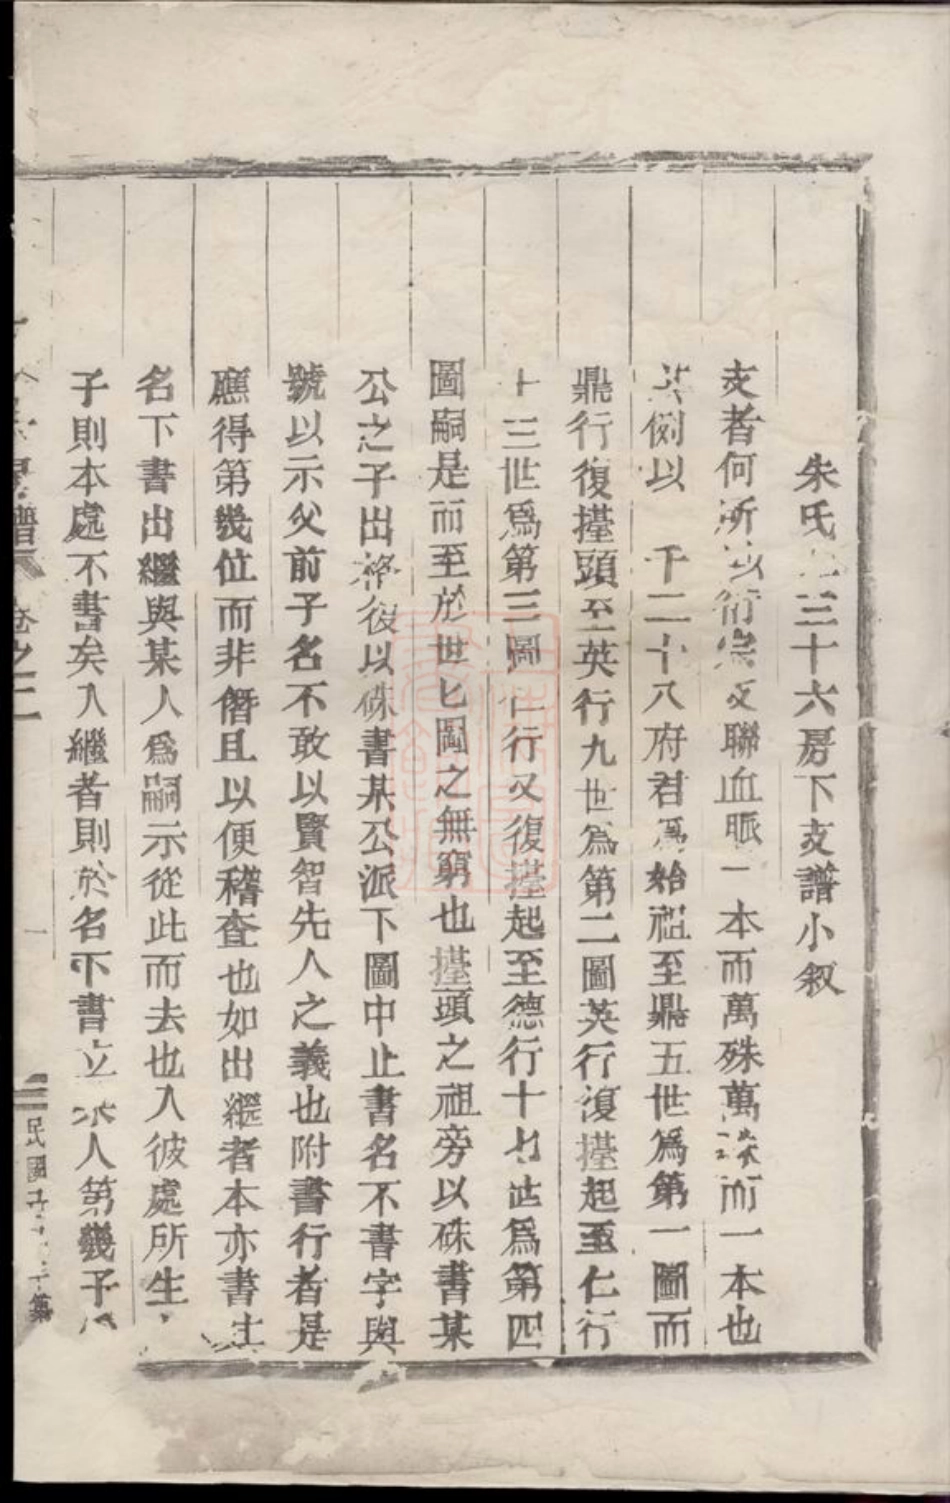 朱氏三十六房下支譜小叙
支者何所以衍宗支聯血脈一本而萬殊萬殊而一本也
其例以千二十八府君爲始祖至鼎五世爲第一圖而
鼎行復擡頭至英行九世爲第二圖英行復擡起至仁行
十三世爲第三圖仁行又復擡起至德行十七世爲第四
圖嗣是而至於世世圖之無窮也擡頭之祖旁以硃書某
公之子出格後以硃書某公派下圖中止書名不書字與
號以示父前子名不敢以賢智先人之義也附書行者是
應得第幾位而非僭且以便稽查也如出繼者本亦書其
名下書出繼與某人爲嗣示從此而去也入彼處所生
子則本處不書矣入繼者則於名下書立某人第幾子
譜 卷之二 一 三 民國